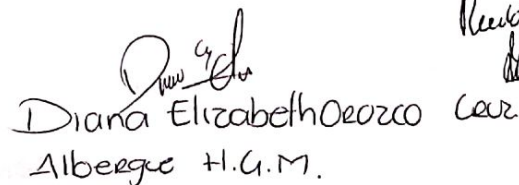 Diana Elizabeth Orozco Cruz.
Albergue H.G.M.